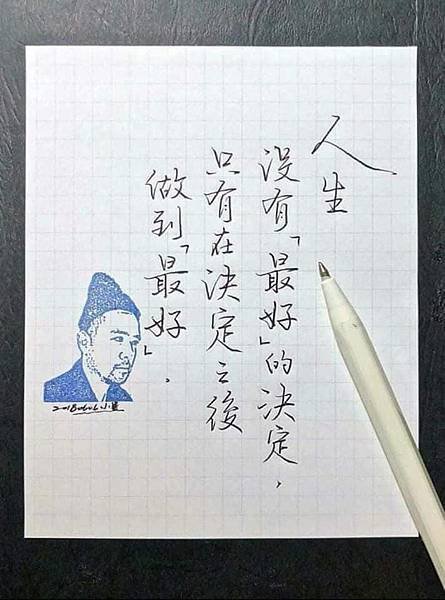 人生
沒有「最好」的決定，
只有在決定之後
做到「最好」．